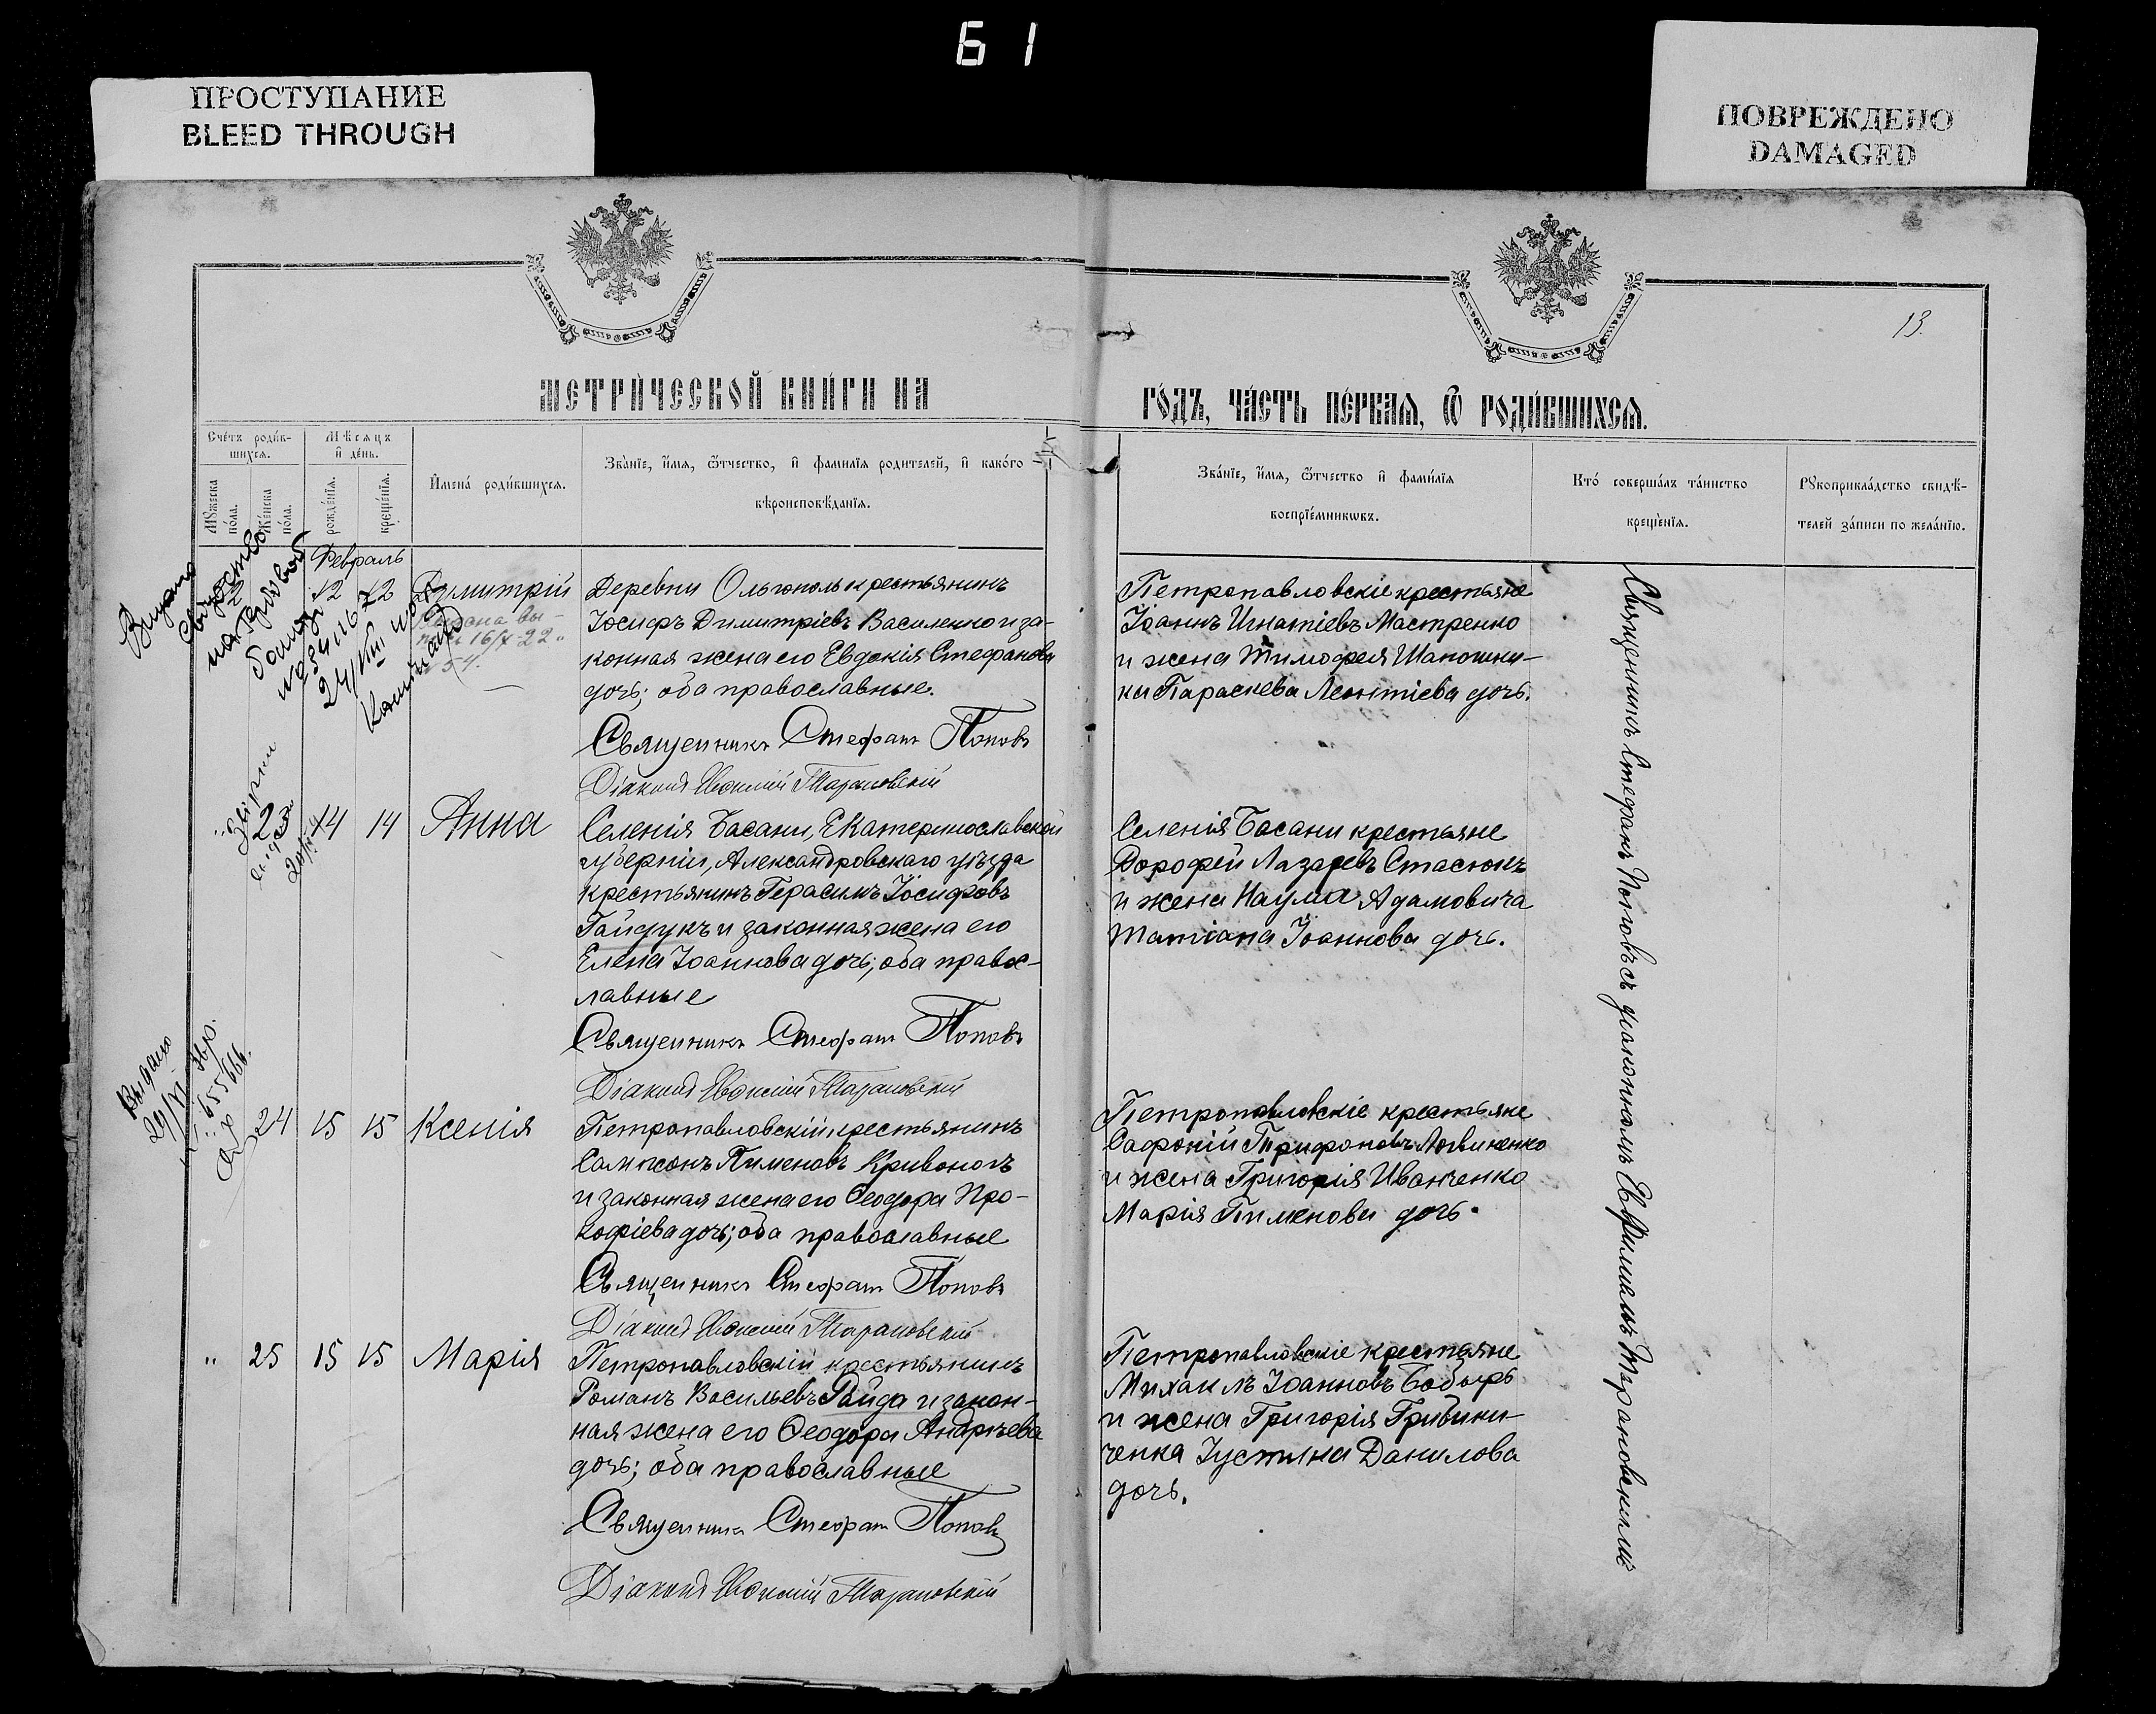 61
ПРОСТУПАНИЕ
BLEED THROUGH
ПОВРЕЖДЕНО
DAMAGED
13.
МЕТРИЧЕСКОЙ КНИГИ НА
ГОДЪ, ЧАСТЬ ПЕРВАЯ, Ѿ РОДИВШИХСЯ.
Счетъ родив-
шихся.
Мѣсяцъ
и день.
Мꙋжеска
пола.
Женска
пола.
рожденїя.
крещенїя.
Имена родившихся.
Званїе, имя, ѿчество, и фамилїя родителей, и какого
вѣроисповѣданїя.
Званїе, имя, ѿчество и фамилїя
воспрїемникѡвъ.
Кто совершалъ таинство
крещенїя.
Рꙋкоприкладство свидѣ-
телей записи по желанїю.
Февраль
12
12
Димитрій
Деревни Ольгополь крестьянинъ
Іосифъ Димитріевъ Василенко и за-
конная жена его Евдокія Стефанова
дочь; оба православные.
Священникъ Стефанъ Поповъ
Діаконъ Евфимій Тарановскій
Петропавловскіе крестьяне
Іоаннъ Игнатіевъ Мастренко
и жена Тимофея Шапошни-
ка Параскева Леонтіева дочь.
Выдано
16/X 22
54.
14
14
Анна
Селенія Басани, Екатеринославской
губерніи, Александровскаго уѣзда
крестьянинъ Герасимъ Іосифовъ
Гайдукъ и законная жена его
Елена Іоаннова дочь; оба правос-
лавные
Священникъ Стефанъ Поповъ
Діаконъ Евфимій Тарановскій
Селенія Басани крестьяне
Дорофей Лазаревъ Стасюкъ
и жена Наума Адамовича
Татіана Іоаннова дочь.
Выдано
24
15
15
Ксенія
Петропавловскій крестьянинъ
Сампсонъ Пименовъ Кривоносъ
и законная жена его Ѳеодора Про-
кофіева дочь; оба православные
Священникъ Стефанъ Поповъ
Діаконъ Евфимій Тарановскій
Петропавловскіе крестьяне
Сафроній Трифоновъ Логвиненко
и жена Григорія Иванченко
Марія Пименова дочь.
"
25
15
15
Марія
Петропавловскій крестьянинъ
Романъ Васильевъ Гайда и закон-
ная жена его Ѳеодора Андреева
дочь; оба православные
Священникъ Стефанъ Поповъ
Діаконъ Евфимій Тарановскій
Петропавловскіе крестьяне
Михаилъ Іоанновъ Бобырь
и жена Григорія Грибини-
ченка Іустина Данилова
дочь.
Священникъ Стефанъ Поповъ съ діакономъ Евфиміемъ Тарановскимъ